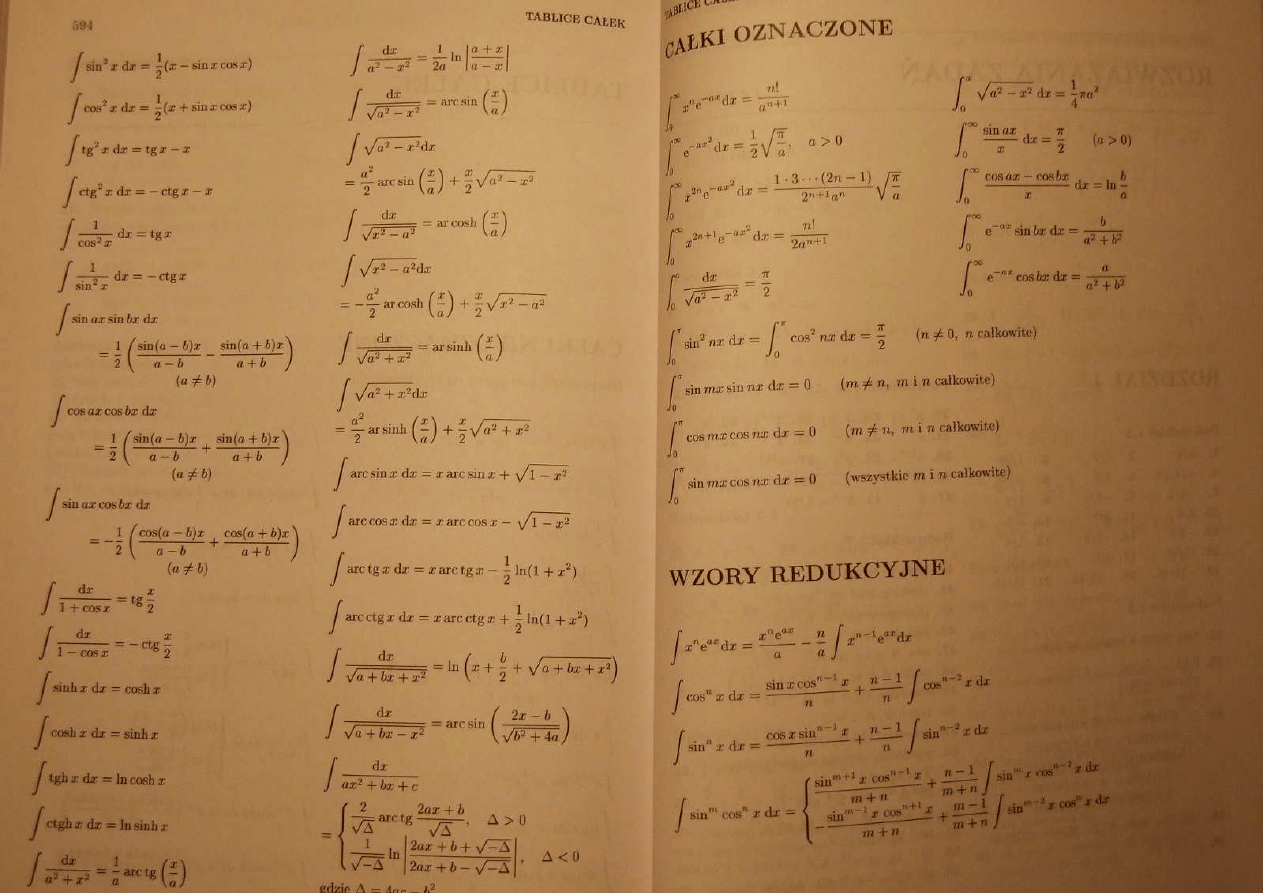 594
TABLICE CAŁEK
∫ sin² x dx = 1/2 (x − sin x cos x)
∫ cos² x dx = 1/2 (x + sin x cos x)
∫ tg² x dx = tg x − x
∫ ctg² x dx = −ctg x − x
∫ 1/cos² x dx = tg x
∫ 1/sin² x dx = −ctg x
∫ sin ax sin bx dx
= 1/2 (sin(a − b)x/(a − b) − sin(a + b)x/(a + b))
(a ≠ b)
∫ cos ax cos bx dx
= 1/2 (sin(a − b)x/(a − b) + sin(a + b)x/(a + b))
(a ≠ b)
∫ sin ax cos bx dx
= −1/2 (cos(a − b)x/(a − b) + cos(a + b)x/(a + b))
(a ≠ b)
∫ dx/(1 + cos x) = tg x/2
∫ dx/(1 − cos x) = −ctg x/2
∫ sinh x dx = cosh x
∫ cosh x dx = sinh x
∫ tgh x dx = ln cosh x
∫ ctgh x dx = ln sinh x
∫ dx/(a² + x²) = 1/a arc tg (x/a)
∫ dx/(a² − x²) = 1/2a ln |(a + x)/(a − x)|
∫ dx/√(a² − x²) = arc sin (x/a)
∫ √(a² − x²) dx
= a²/2 arc sin (x/a) + x/2 √(a² − x²)
∫ dx/√(x² − a²) = ar cosh (x/a)
∫ √(x² − a²) dx
= −a²/2 ar cosh (x/a) + x/2 √(x² − a²)
∫ dx/√(a² + x²) = ar sinh (x/a)
∫ √(a² + x²) dx
= a²/2 ar sinh (x/a) + x/2 √(a² + x²)
∫ arc sin x dx = x arc sin x + √(1 − x²)
∫ arc cos x dx = x arc cos x − √(1 − x²)
∫ arc tg x dx = x arc tg x − 1/2 ln(1 + x²)
∫ arc ctg x dx = x arc ctg x + 1/2 ln(1 + x²)
∫ dx/√(a + bx + x²) = ln (x + b/2 + √(a + bx + x²))
∫ dx/√(a + bx − x²) = arc sin ((2x − b)/√(b² + 4a))
∫ dx/(ax² + bx + c)
= { 2/√Δ arc tg (2ax + b)/√Δ, Δ > 0
1/√−Δ ln |(2ax + b + √−Δ)/(2ax + b − √−Δ)|, Δ < 0
gdzie Δ = 4ac − b²
TABLICE
CAŁKI OZNACZONE
∫₀^∞ xⁿ e^(−ax) dx = n!/a^(n+1)
∫₀^∞ e^(−ax²) dx = 1/2 √(π/a), a > 0
∫₀^∞ x^(2n) e^(−ax²) dx = 1 · 3 ··· (2n − 1)/(2^(n+1) aⁿ) √(π/a)
∫₀^∞ x^(2n+1) e^(−ax²) dx = n!/(2a^(n+1))
∫₀^a dx/√(a² − x²) = π/2
∫₀^a √(a² − x²) dx = 1/4 πa²
∫₀^∞ sin ax/x dx = π/2 (a > 0)
∫₀^∞ (cos ax − cos bx)/x dx = ln b/a
∫₀^∞ e^(−ax) sin bx dx = b/(a² + b²)
∫₀^∞ e^(−ax) cos bx dx = a/(a² + b²)
∫₀^π sin² nx dx = ∫₀^π cos² nx dx = π/2 (n ≠ 0, n całkowite)
∫₀^π sin mx sin nx dx = 0 (m ≠ n, m i n całkowite)
∫₀^π cos mx cos nx dx = 0 (m ≠ n, m i n całkowite)
∫₀^π sin mx cos nx dx = 0 (wszystkie m i n całkowite)
WZORY REDUKCYJNE
∫ xⁿ e^(ax) dx = xⁿ e^(ax)/a − n/a ∫ x^(n−1) e^(ax) dx
∫ cosⁿ x dx = sin x cos^(n−1) x/n + (n − 1)/n ∫ cos^(n−2) x dx
∫ sinⁿ x dx = cos x sin^(n−1) x/n + (n − 1)/n ∫ sin^(n−2) x dx
∫ sin^m cosⁿ x dx = { sin^(m+1) x cos^(n−1) x/(m + n) + (n − 1)/(m + n) ∫ sin^m x cos^(n−2) x dx
−sin^(m−1) x cos^(n+1) x/(m + n) + (m − 1)/(m + n) ∫ sin^(m−2) x cosⁿ x dx